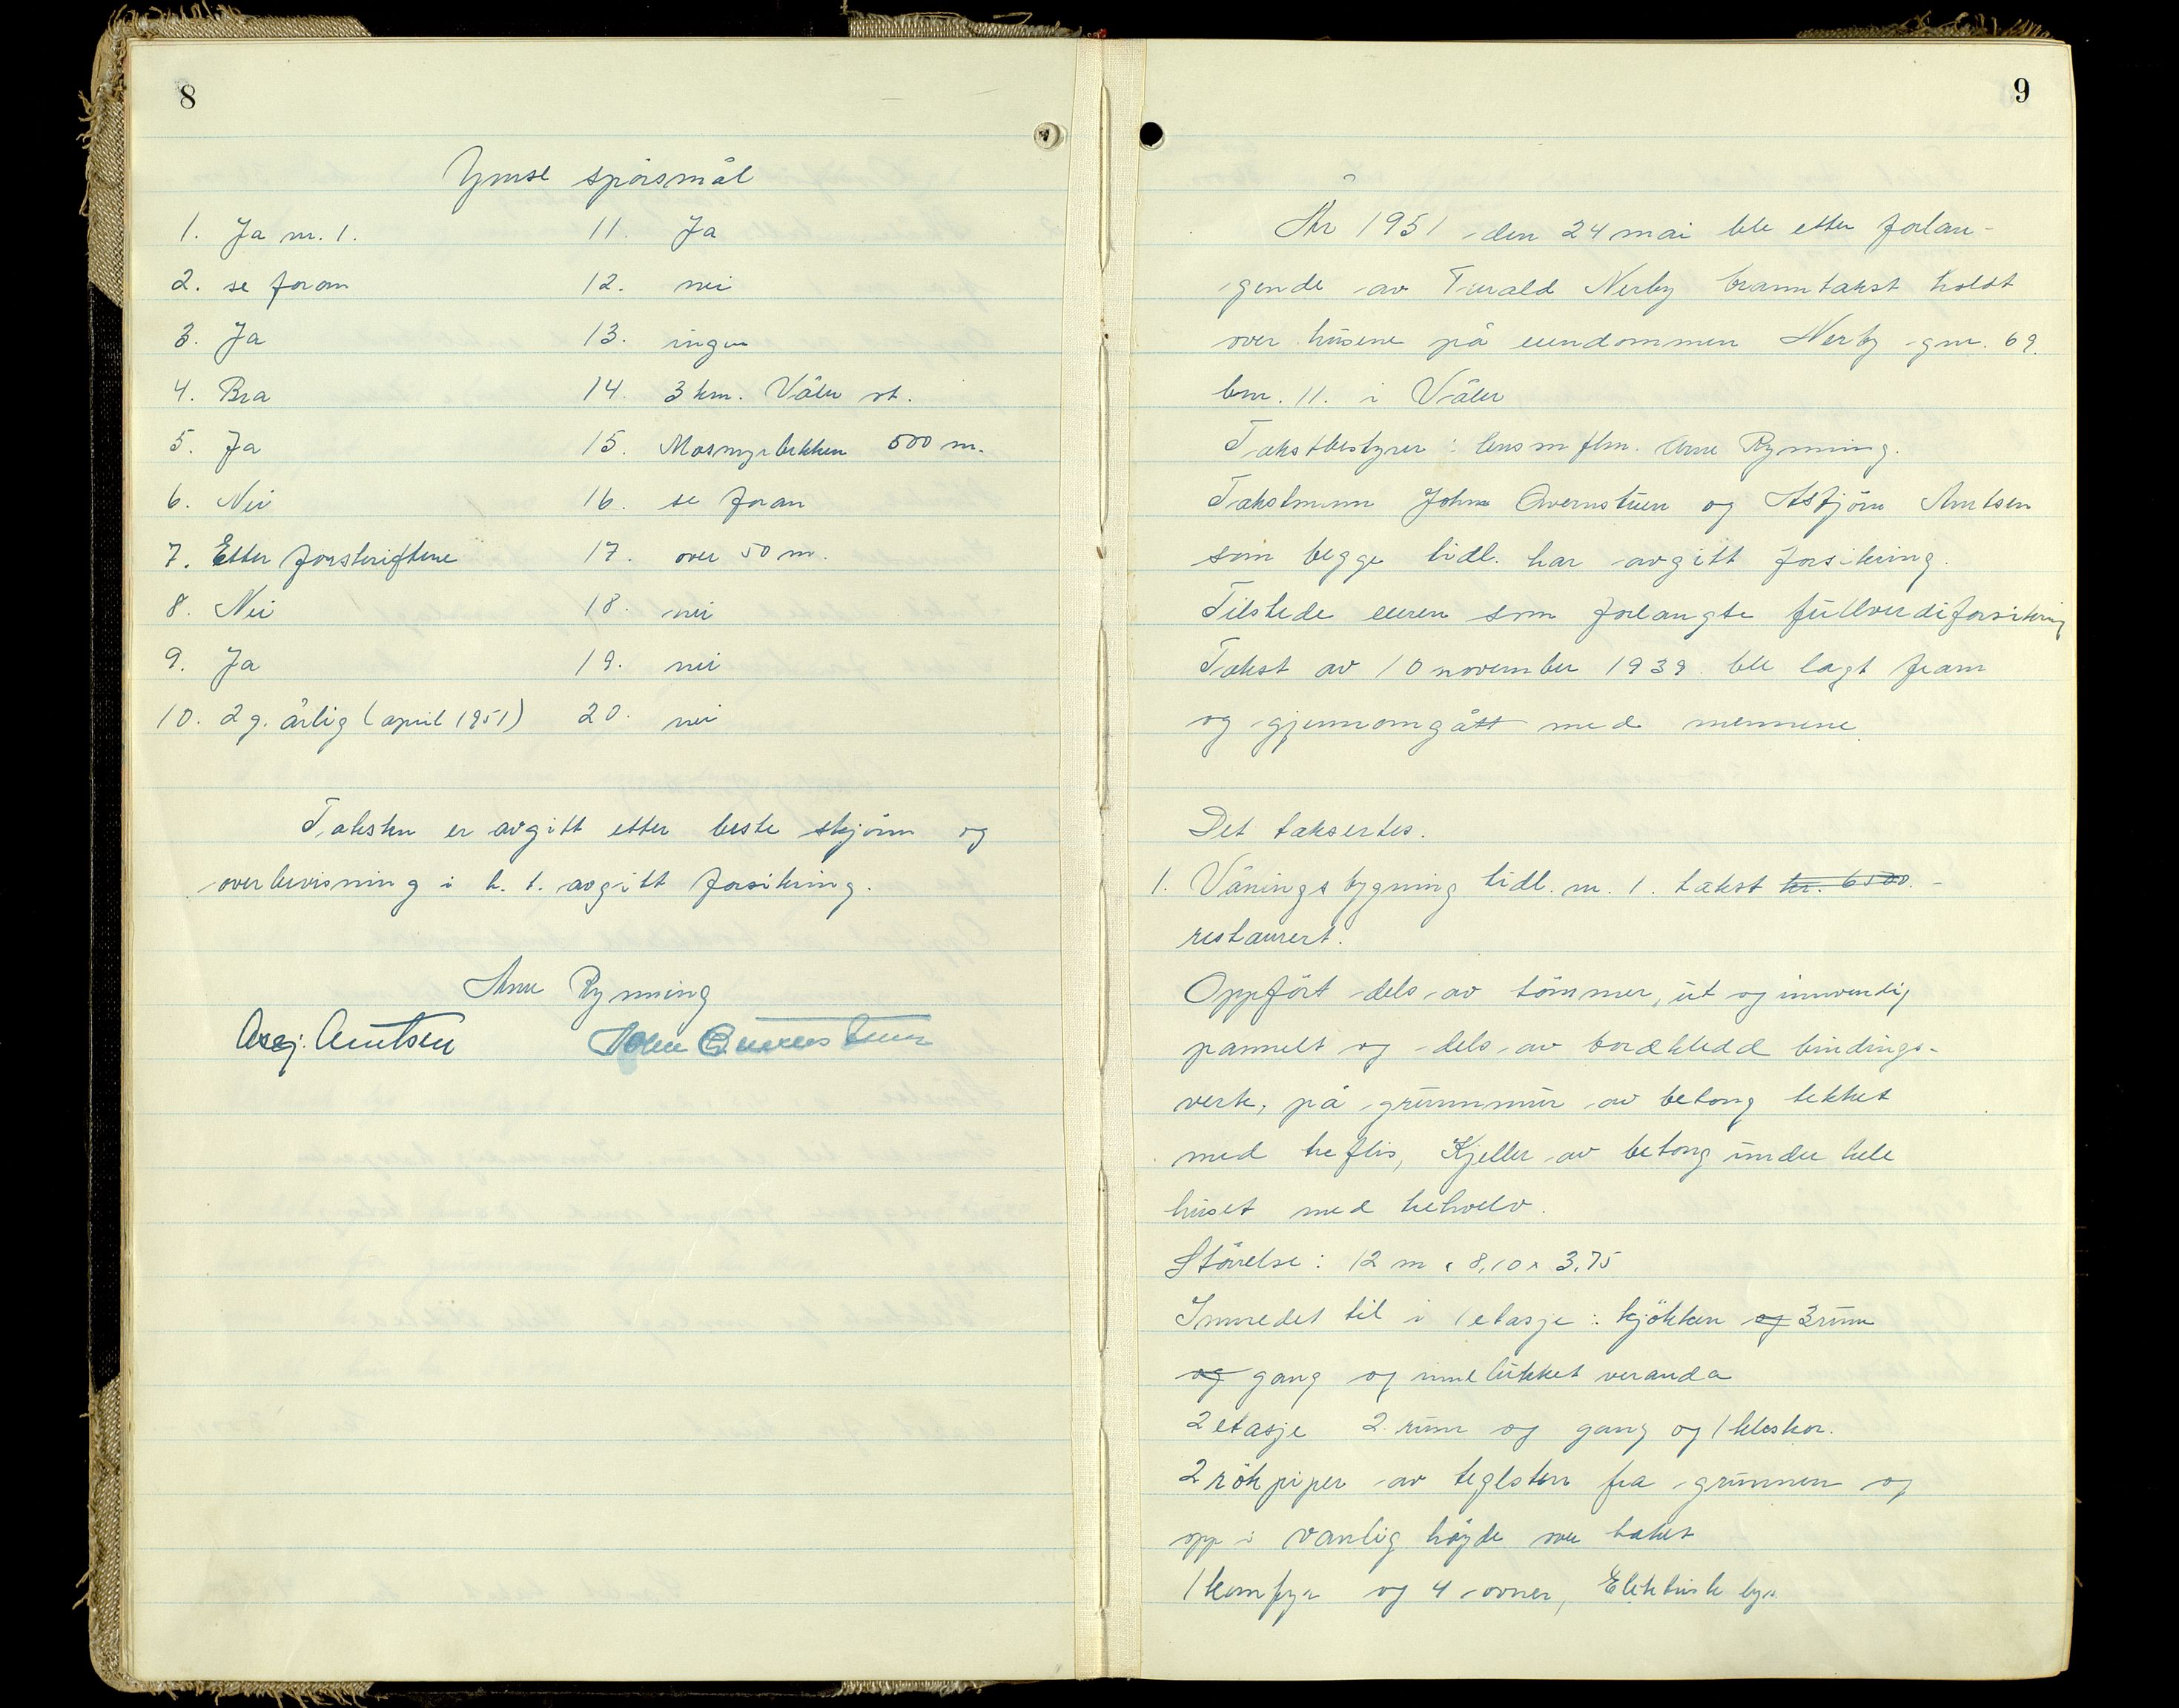 8
Ymse spörsmål
1. Ja nr. 1.
2. se foran
3. Ja
4. Bra
5. Ja
6. Nei
7. Etter forskriftene
8. Nei
9. Ja
10. 2 g. årlig (april 1951)
11. Ja
12. nei
13. ingen
14. 3 km. Våler st.
15. Mosmyrbekken 500 m.
16. se foran
17. over 50 m.
18. nei
19. nei
20. nei
Taksten er avgitt etter beste skjönn og
overbevisning i h. t. avgitt forsikring.
Arne Rymning
Asbj. Arntsen John Qvernstuen
9
År 1951 den 24 mai ble etter forlan-
gende av Turald Nerby branntakst holdt
over husene på eiendommen Nerby gnr. 69.
bnr. 11. i Våler
Takstbestyrer: lensm flm. Arne Rymning.
Takstmenn John Qvernstuen og Asbjörn Arntsen
som begge tidl. har avgitt forsikring.
Tilstede eieren som forlangte fullverdiforsikring
Takst av 10 november 1939 ble lagt fram
og gjennomgått med mennene.
Det taksertes.
1. Våningsbygning tidl. nr. 1. takst kr. 6500.-
restaurert.
Oppfört dels av tömmer, ut og innvendig
pannelt og dels av bordkledd bindings-
verk, på grunnmur av betong tekket
med treflis, Kjeller av betong under hele
huset med trehvelv.
Störelse: 12 m x 8,10 x 3,75
Innredet til i 1 etasje: kjökken og 3 rum
og gang og innelukket veranda
2 etasje 2 rum og gang og 1 kleskot.
2 rökpiper av teglsten fra grunnen og
opp i vanlig höyde over taket
1 komfyr og 4 ovner, Elektrisk lys.